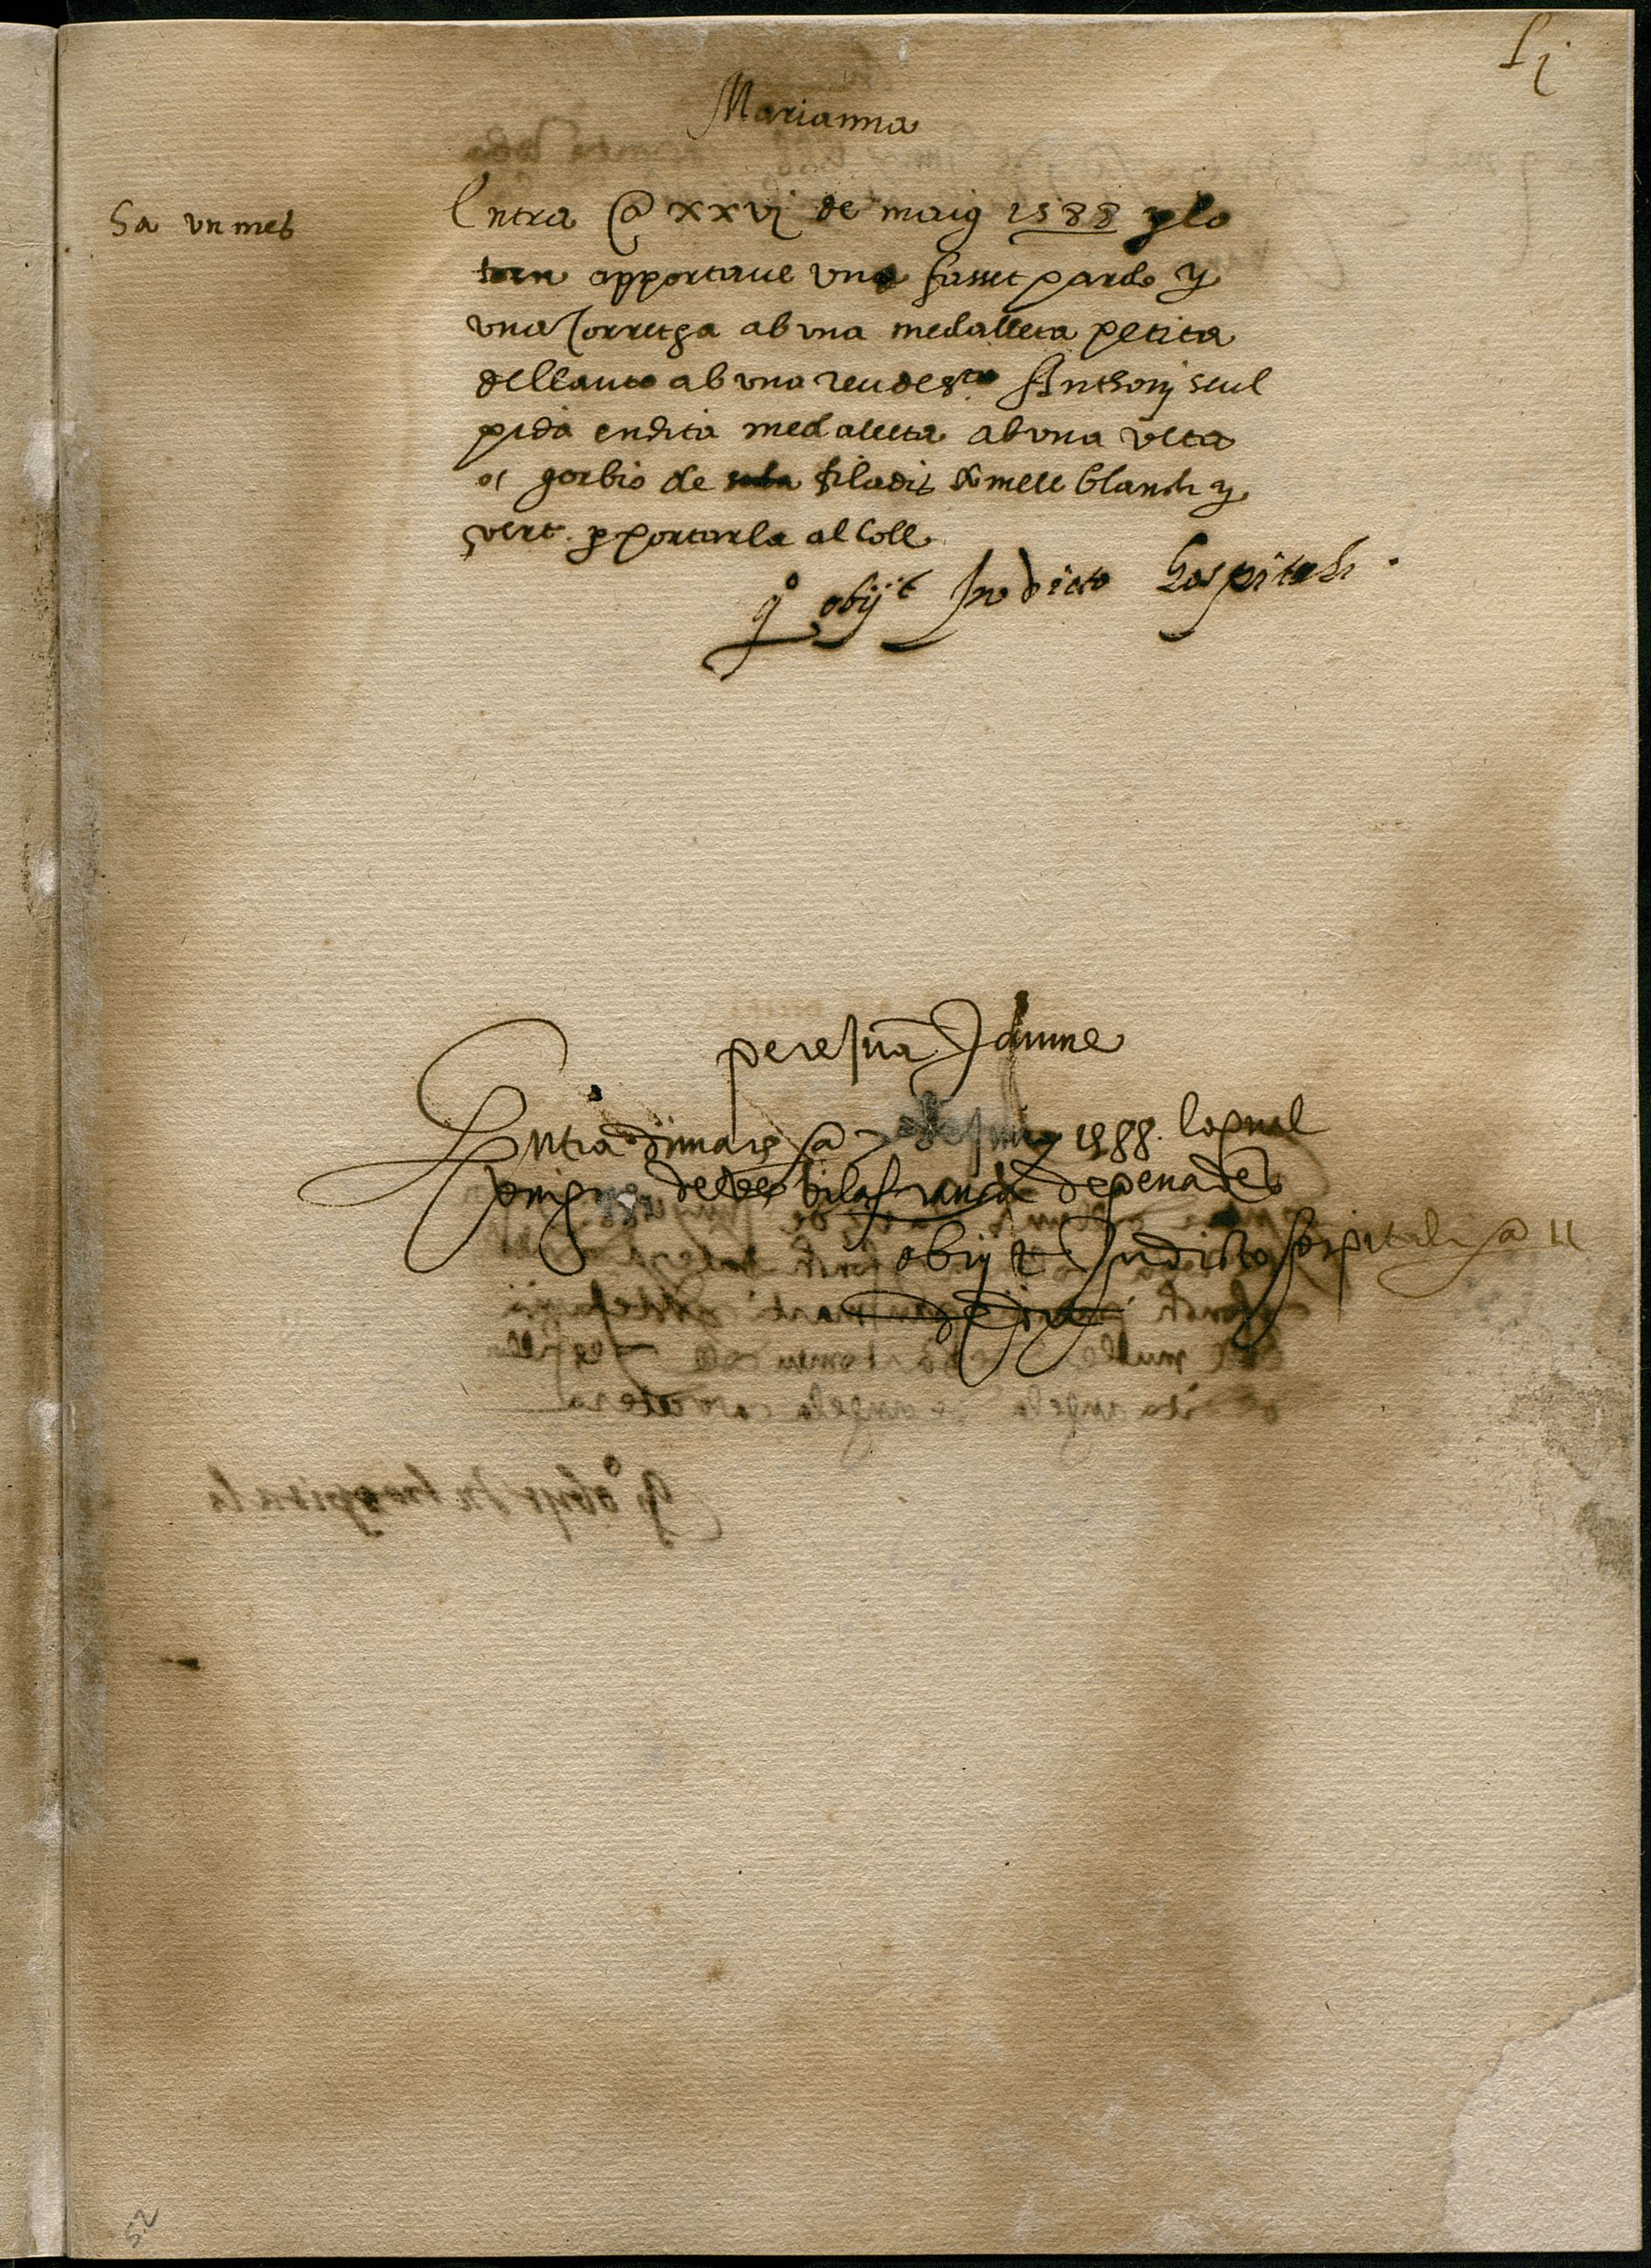 Lj
Marianna
ha vn mes
Entra @ xxvj de maig 1588 p lo
torn apportaue vna sasset pardo y
vna correega ab vna medalleta petita
de llauto ab vna reu de sto Anthonj scul
pida en dita medalleta ab vna veta
o gorbio de filadis di mell blanch y
vert. p portarla al coll
qº obijt In dicto hospitali.
pere Juā Jaume
Entra dimars @ 7 de Juny 1588. lo qual
de vilafranca de penades
obijt In dicto hospitali @ 11
52